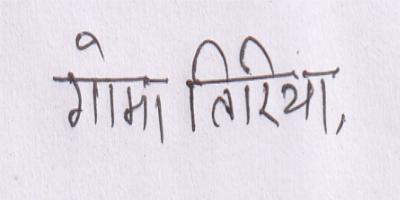 गोमा तिरिया,